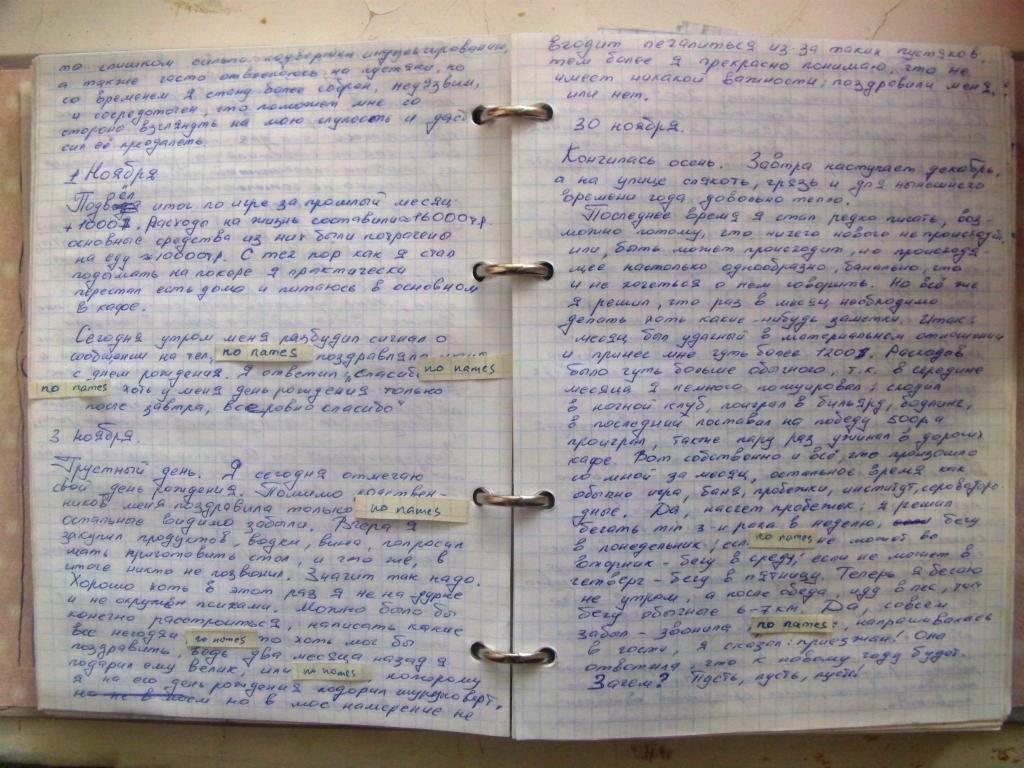 то слишком сильно подвержен индульгированию,
а также часто отвлекаюсь на пустяки, но
со временем я стану более собран, неуязвим,
и сосредоточен, это поможет мне со
стороны взглянуть на мою глупость и даст
сил её преодолеть.
1 Ноября
Подвёл итог по игре за прошлый месяц
+1000$. Расходы на жизнь составили ≈16000р.
основные средства из них были потрачены
на еду ≈10000р. С тех пор как я стал
поднимать на покере я практически
перестал есть дома и питаюсь в основном
в кафе.
Сегодня утром меня разбудил сигнал о
сообщении на тел, no names поздравляла
с днем рождения. Я ответил „Спасибо no names
no names хоть у меня день рождения только
после завтра, всё ровно спасибо"
3 ноября.
Грустный день. Я сегодня отмечаю
свой день рождения. Помимо родствен-
ников меня поздравила только no names
остальные видимо забыли. Вчера я
закупил продуктов, водки, вина, попросил
мать приготовить стол, и что же, в
итоге никто не позвонил. Значит так надо.
Хорошо хоть в этот раз я не на дурке
и не окружён психами. Можно было бы
конечно расстроиться, написать какие
все негодяи no names то хоть мог бы
поздравить, ведь два месяца назад я
подарил ему велик, или no names которому
я на его день рождения подарил шуруповёрт,
но в мое намерение не
входит печалиться из-за таких пустяков,
тем более я прекрасно понимаю, что не
имеет никакой важности; поздравили меня,
или нет.
30 ноября.
Кончилась осень. Завтра наступает декабрь,
а на улице слякоть, грязь и для нынешнего
времени года довольно тепло.
Последнее время я стал редко писать, воз-
можно потому, что ничего нового не происходит
или, быть может происходит, но происходя-
щее настолько однообразно, банально, что
и не хочеться о нем говорить. Но всё же
я решил, что раз в месяц необходимо
делать хоть какие-нибудь заметки. Итак:
месяц был удачный в материальном отношении
и принес мне чуть более 1200$. Расходов
было чуть больше обычного, т.к. в середине
месяца я немного пошиковал; сходил
в ночной клуб, поиграл в бильярд, боулинг,
в последний поставил на победу 500р и
проиграл, также пару раз ужинал в дорогих
кафе. Вот собственно и всё, что произошло
со мной за месяц, остальное время как
обычно игра, баня, пробежки, институт,
Да, насчет пробежек; я решил
бегать 3-и раза в неделю, бегу
в понедельник; если no names не может во
вторник - бегу в среду; если не может в
четверг - бегу в пятницу. Теперь я бегаю
не утром, а после обеда, иду в лес, там
бегу обычные 6-7 км. Да, совсем
забыл - звонила no names, напрашивалась
в гости, я сказал: приезжай! Она
ответила, что к новому году будет.
Зачем? Пусть, пусть, пусть